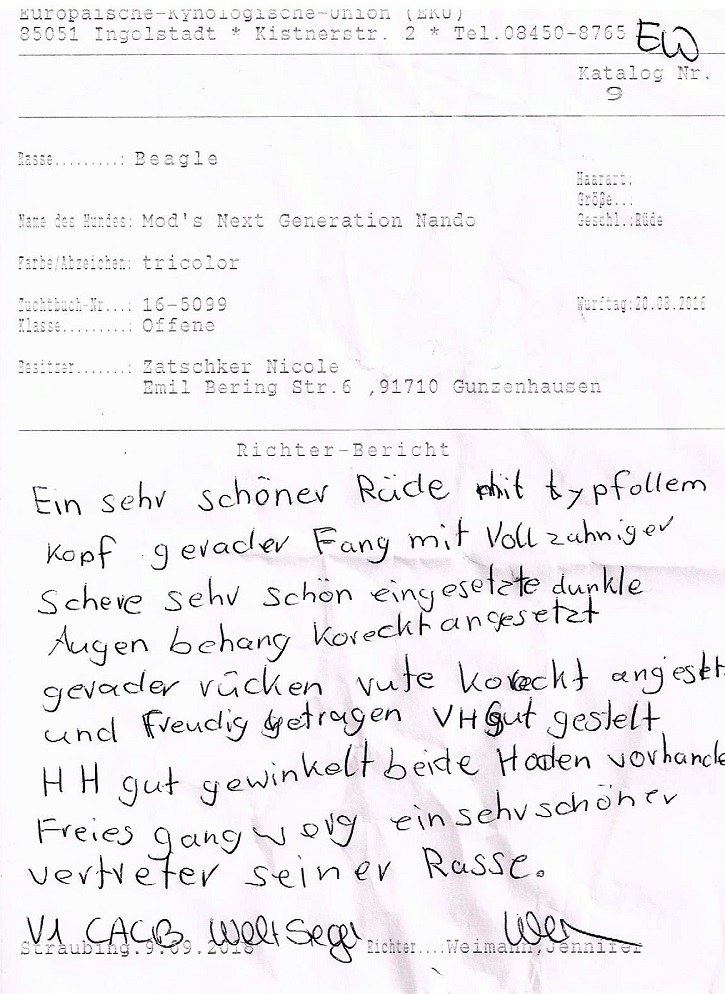 Europäische-Kynologische-Union (EKU)
85051 Ingolstadt * Kistnerstr. 2 * Tel.08450-8765 EW
Katalog Nr.
9
Rasse.........: Beagle
Haarart:
Größe..:
Name des Hundes: Mod's Next Generation Nando Geschl.:Rüde
Farbe/Abzeichen: tricolor
Zuchtbuch-Nr...: 16-5099 Wurftag:20.08.2016
Klasse.........: Offene
Besitzer.......: Zatschker Nicole
Emil Bering Str.6 ,91710 Gunzenhausen
Richter-Bericht
Ein sehr schöner Rüde mit typfollem
Kopf gerader Fang mit Vollzahniger
Schere sehr schön eingesetzte dunkle
Augen behang Koreckt angesetzt
gerader rücken rute koreckt angesetzt
und Freudig getragen VH gut gestelt
HH gut gewinkelt beide Hoden vorhande
Freies gangwerg ein sehr schöner
vertreter seiner Rasse.
V1 CACIB Welt Sieger
Straubing.9.09.2018 Richter...:Weimann,Jennifer